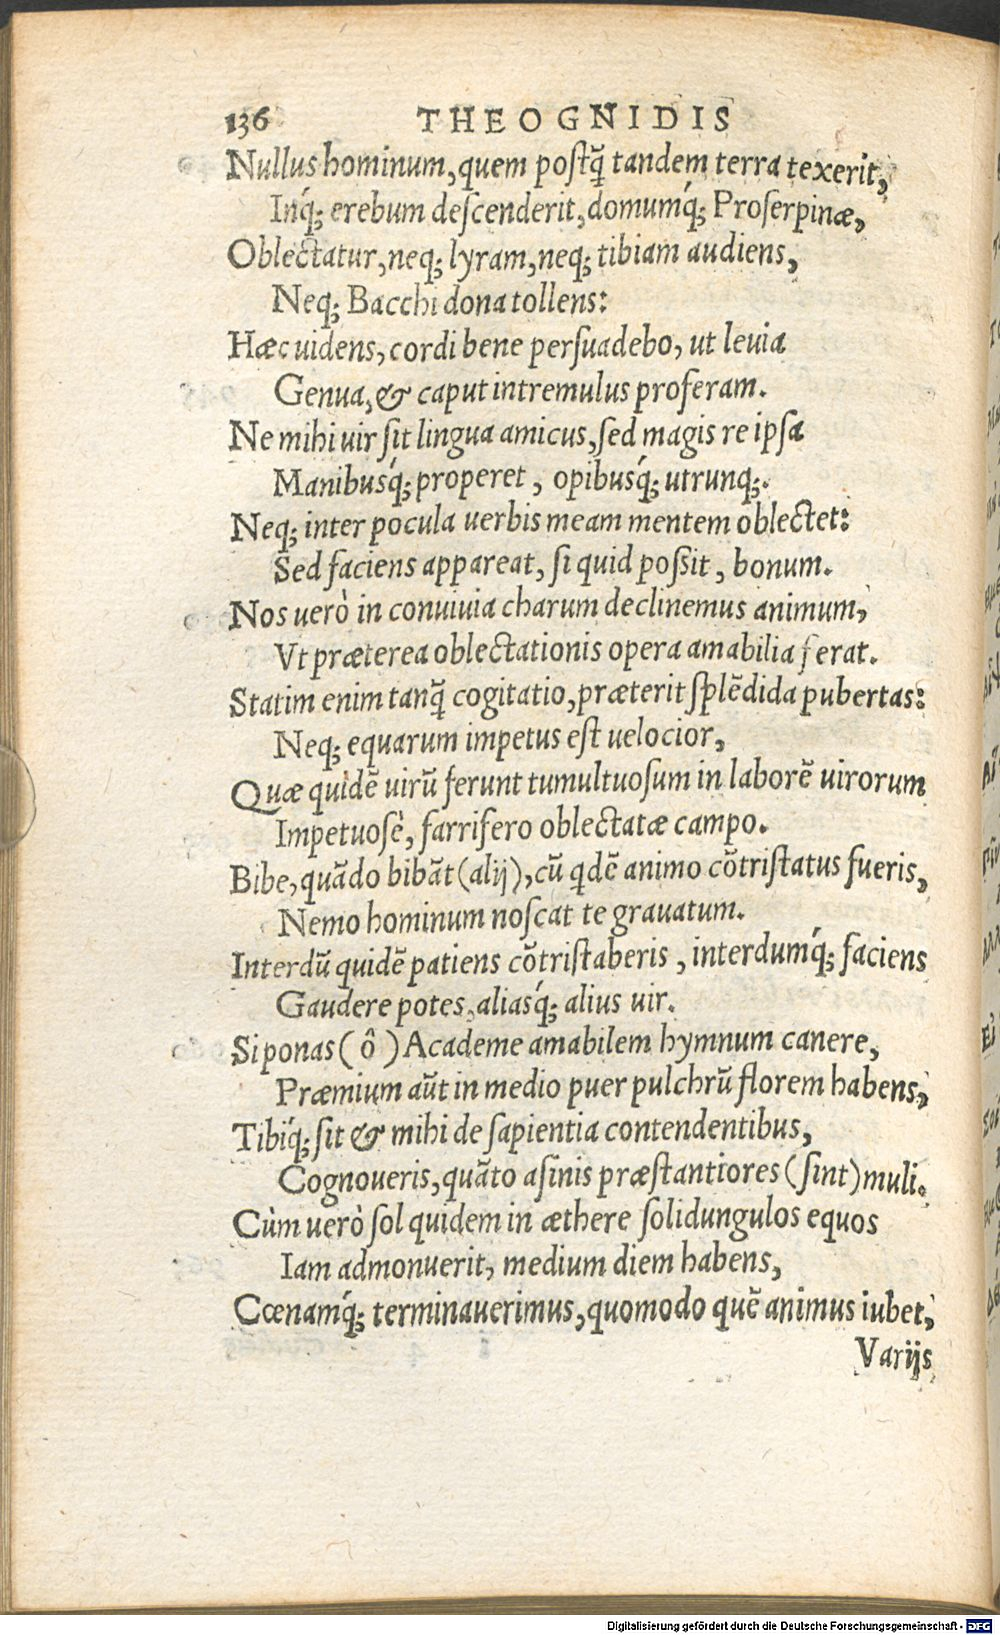 136 THEOGNIDIS
Nullus hominum, quem postq̃ tandem terra texerit,
Inq́; erebum descenderit, domumq́; Proserpinæ,
Oblectatur, neq; lyram, neq; tibiam audiens,
Neq; Bacchi dona tollens:
Hæc uidens, cordi bene persuadebo, ut leuia
Genua, & caput intremulus proferam.
Ne mihi uir sit lingua amicus, sed magis re ipsa
Manibusq́; properet, opibusq́; utrunq;.
Neq; inter pocula uerbis meam mentem oblectet:
Sed faciens appareat, si quid poßit, bonum.
Nos uerò in conuiuia charum declinemus animum,
Vt præterea oblectationis opera amabilia ferat.
Statim enim tanq̃ cogitatio, præterit splẽdida pubertas:
Neq; equarum impetus est uelocior,
Quæ quidẽ uirũ ferunt tumultuosum in laborẽ uirorum
Impetuosè, farrifero oblectatæ campo.
Bibe, quãdo bibãt (alij), cũ qdẽ animo cõtristatus fueris,
Nemo hominum noscat te grauatum.
Interdũ quidẽ patiens cõtristaberis, interdumq́; faciens
Gaudere potes, aliasq́; alius uir.
Si ponas (ô) Academe amabilem hymnum canere,
Præmium aũt in medio puer pulchrũ florem habens,
Tibiq́; sit & mihi de sapientia contendentibus,
Cognoueris, quãto asinis præstantiores (sint) muli.
Cùm uerò sol quidem in æthere solidungulos equos
Iam admonuerit, medium diem habens,
Cœnamq́; terminauerimus, quomodo quẽ animus iubet,
Varijs
Digitalisierung gefördert durch die Deutsche Forschungsgemeinschaft - DFG